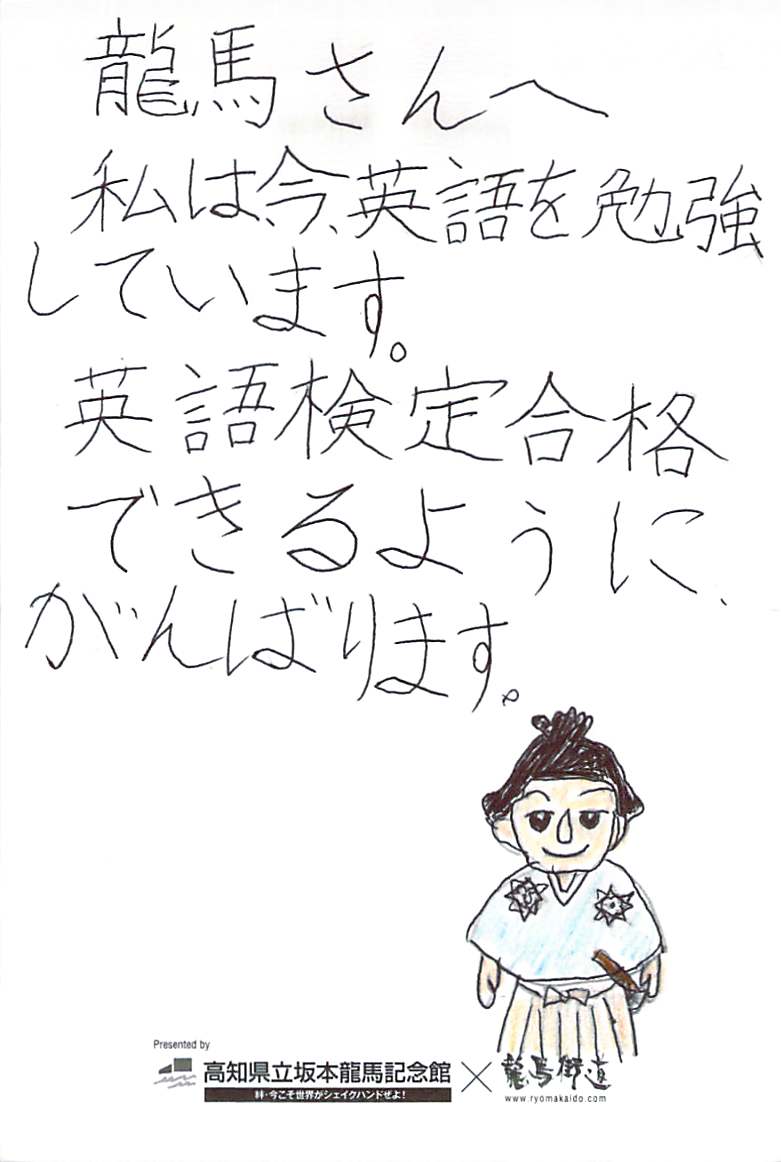 龍馬さんへ
私は、今、英語を勉強
しています。
英語検定合格
できるように、
がんばります。
Presented by
高知県立坂本龍馬記念館 × 龍馬街道
絆・今こそ世界がシェイクハンドぜよ！
www.ryomakaido.com